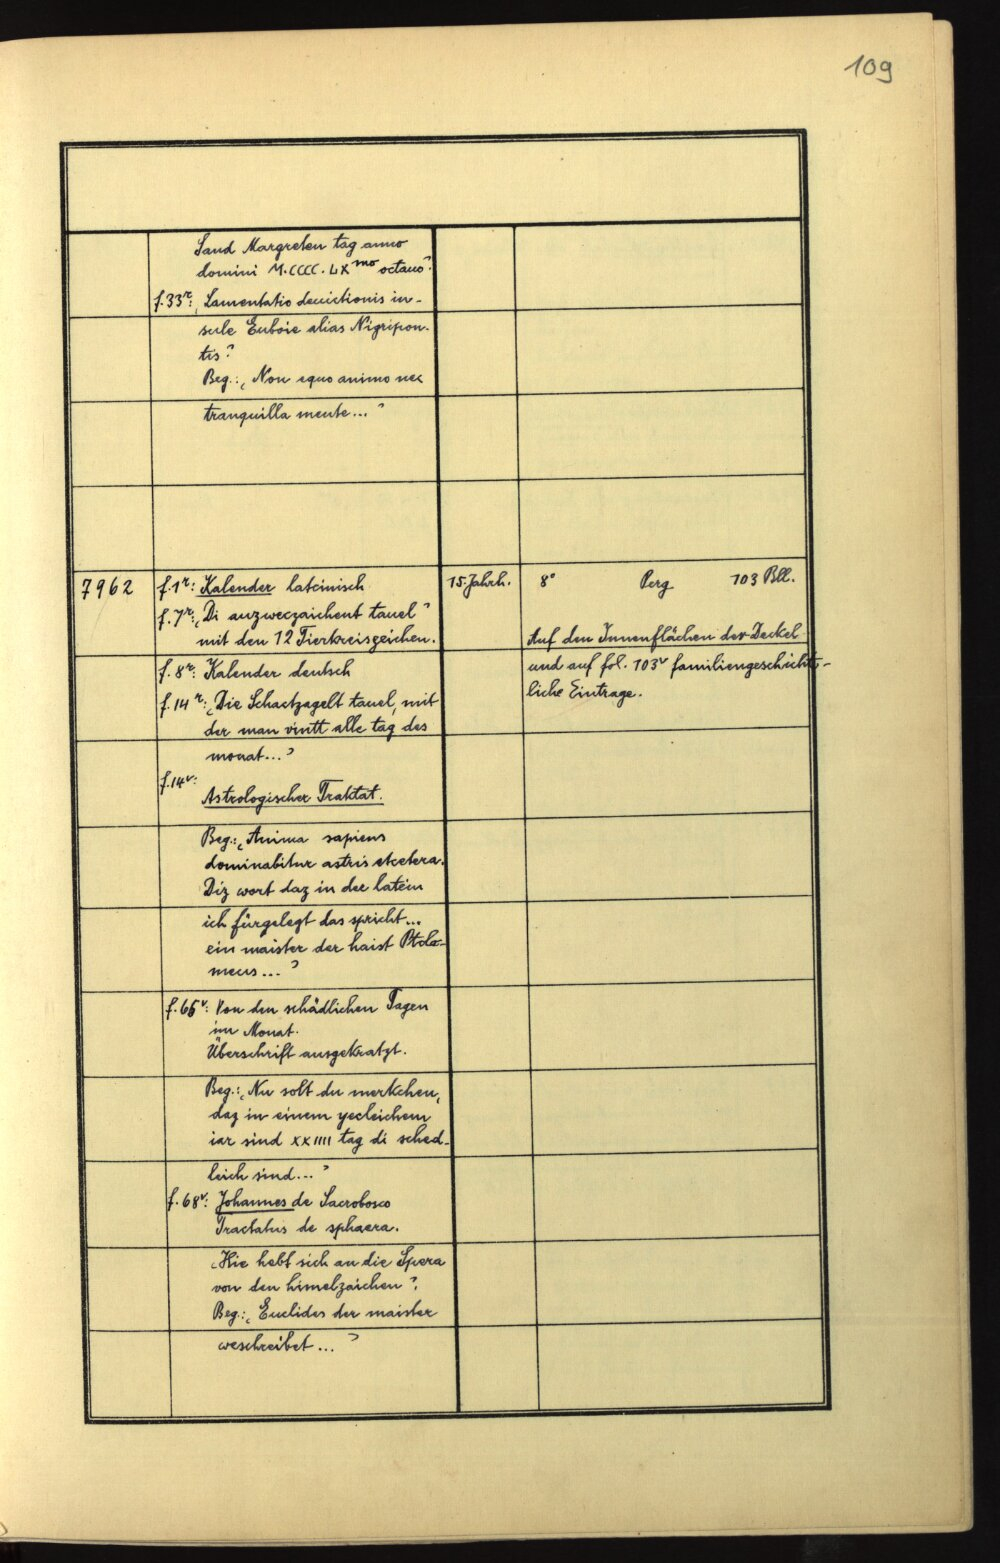 109
Sand Margreten tag anno
domini M.CCCC.LX mo octauo".
f.33r: „Lamentatio deuictionis in-
sule Euboie alias Nigripon-
tis"
Beg.: „Non equo animo nec
tranquilla mente..."
7962
f.1r: Kalender lateinisch
15. Jahrh.
8° Perg 103 Bll.
f.7r: „Di auzweczaichent tauel"
mit den 12 Tierkreiszeichen.
Auf den Innenflächen der Deckel
und auf fol. 103v familiengeschicht-
liche Eintrage.
f.8r: Kalender deutsch
f.14r: „Die Schactzagelt tauel, mit
der man vintt alle tag des
monat..."
f.14v:
Astrologischer Traktat.
Beg.: „Anima sapiens
dominabitur astris etcetera.
Diz wort daz in der latein
ich fürgelegt das spricht...
ein maister der haist Ptolo-
meus..."
f.65v: Von den schädlichen Tagen
im Monat.
Überschrift ausgekratzt.
Beg.: „Nu solt du merkchen,
daz in einem yecleichem
iar sind XXIIII tag di sched-
leich sind..."
f.68v: Johannes de Sacrobosco
Tractatus de sphaera.
„Hie hebt sich an die Spera
von den himelzaichen".
Beg.: „Euclides der maister
weschreibet..."